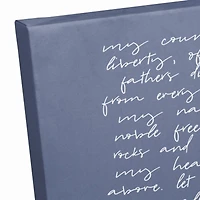 my coun
liberty, of
fathers di
from every
my na
noble free
rocks and
my hea
above. let